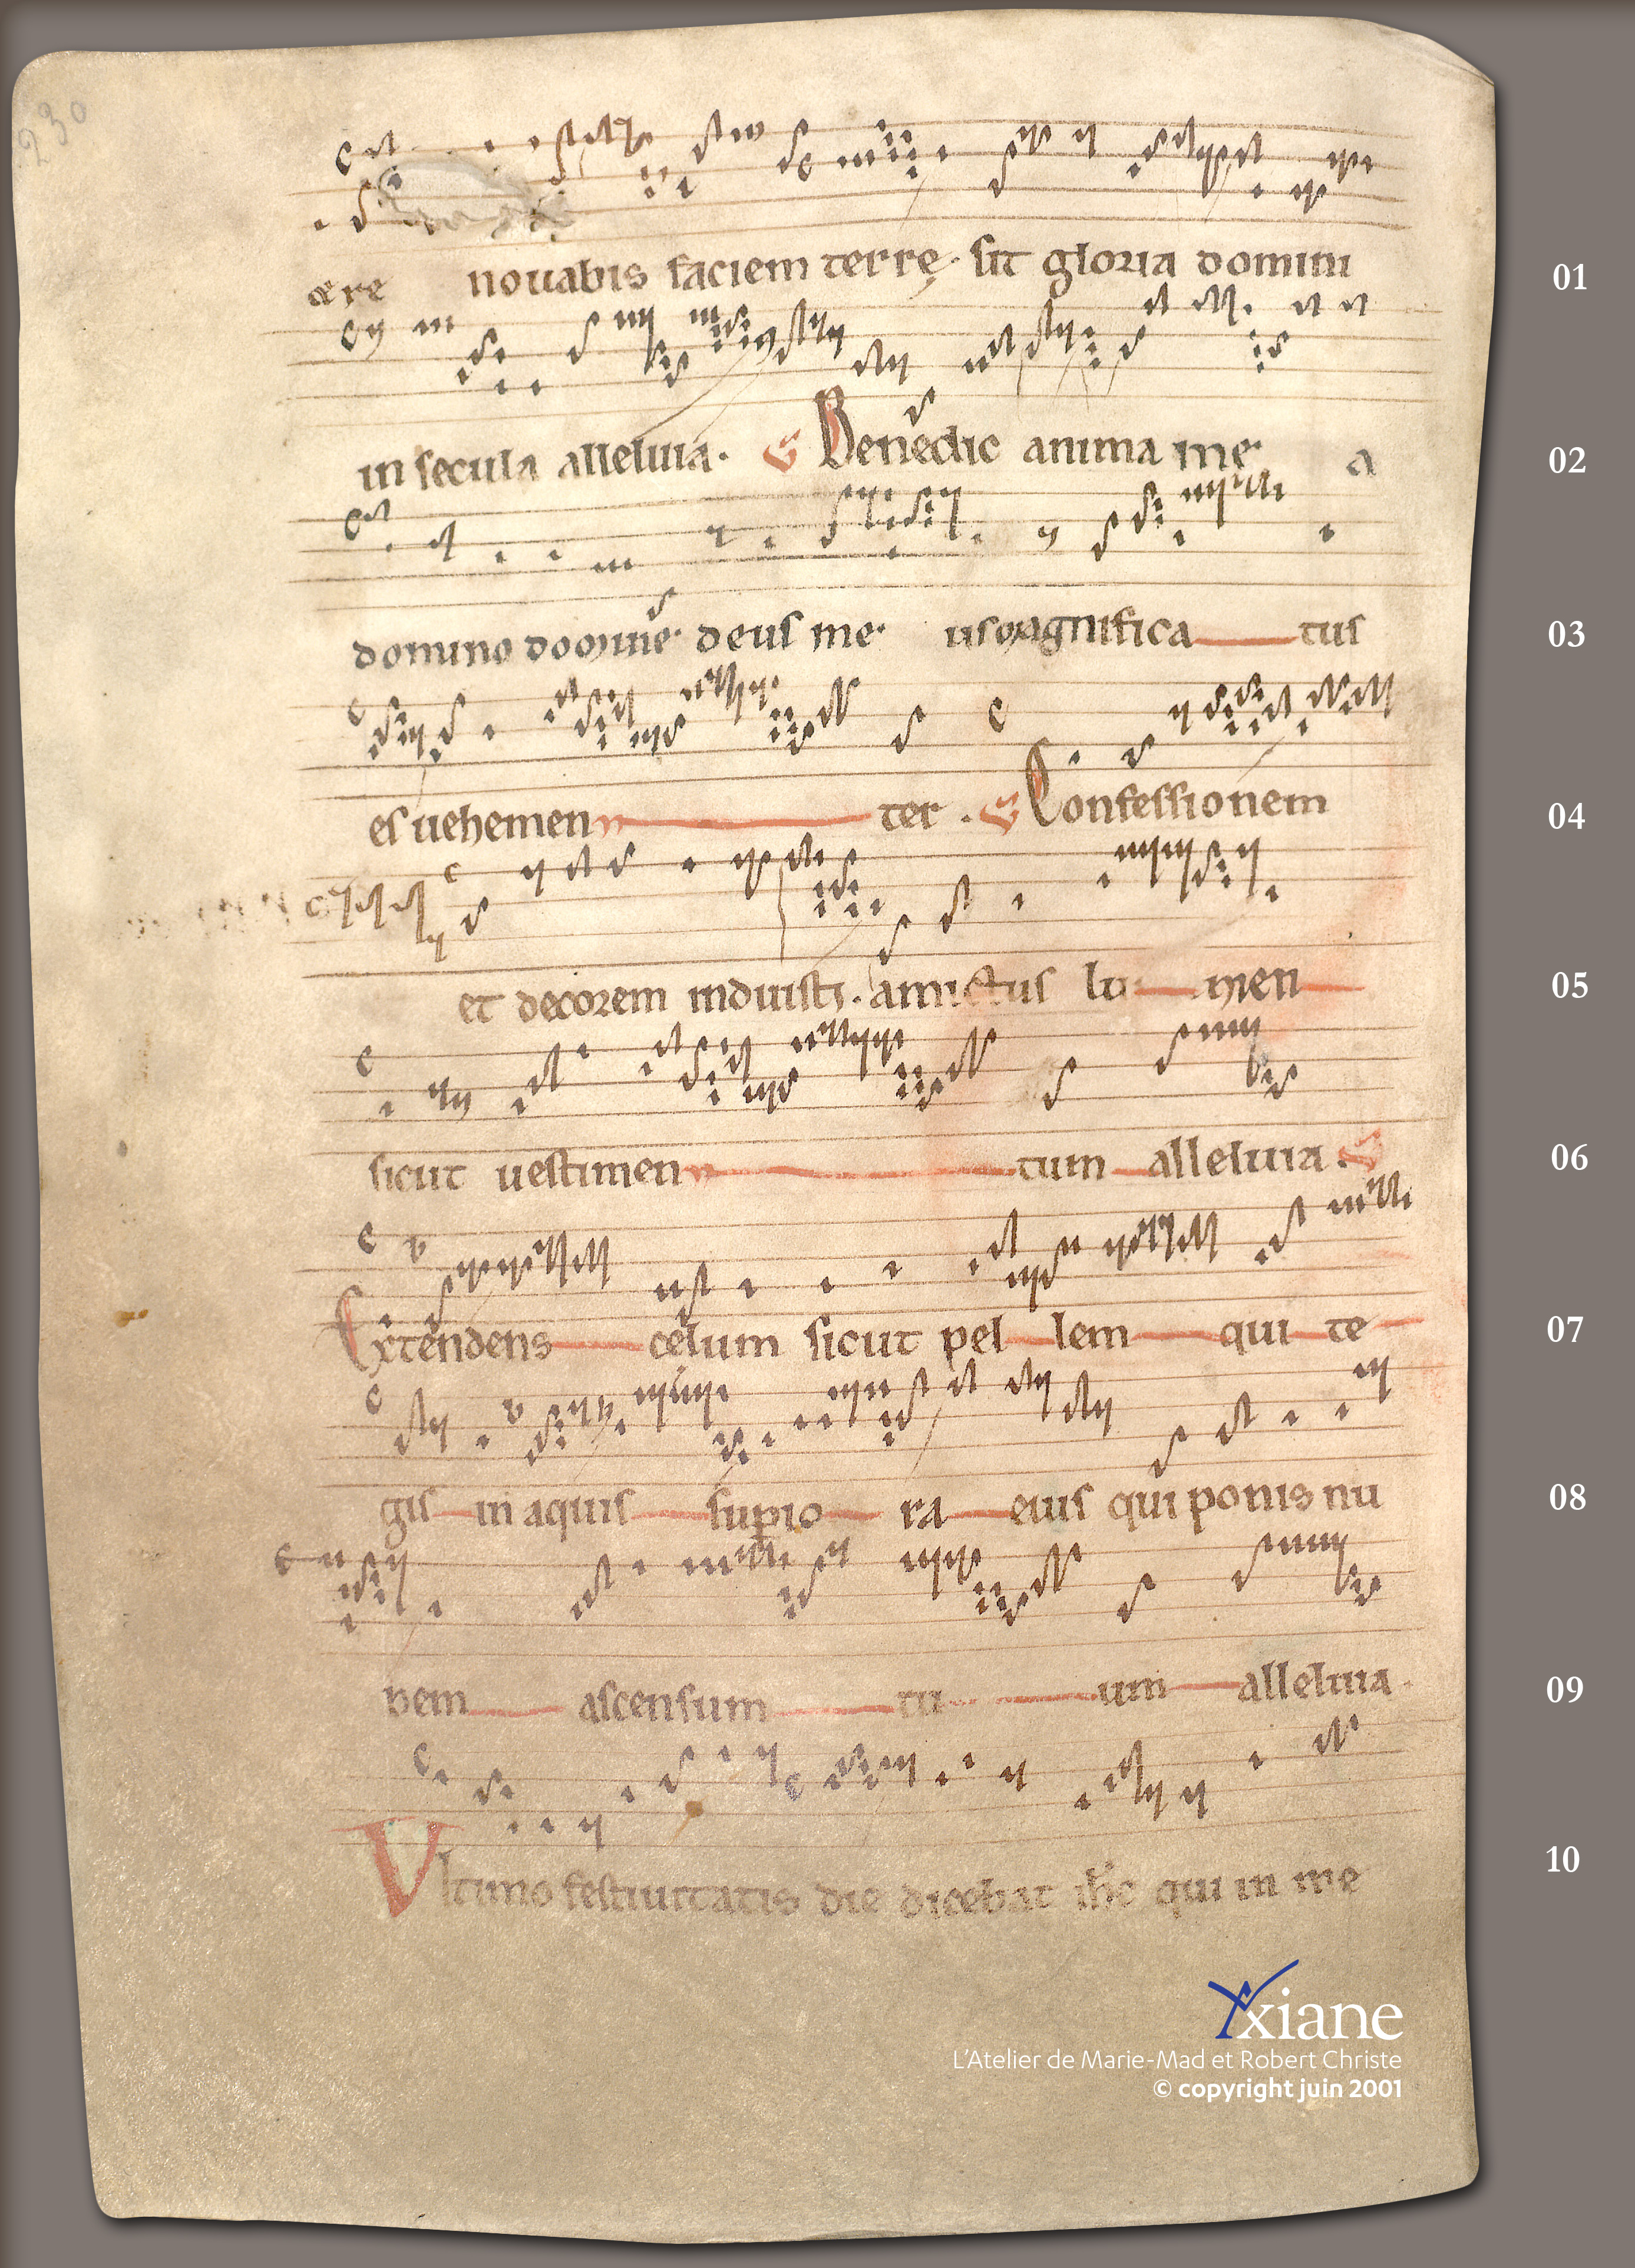 230
et re novabis faciem terrę. sit gloria domini 01
in secula alleluia. Benedic anima me a 02
domino domine. deus me us magnifica tus 03
es vehemen ter. Confessionem 04
et decorem induisti. amictus lu men 05
sicut vestimen tum alleluia. 06
Extendens celum sicut pel lem qui te 07
gis in aquis supio ra eius qui ponis nu 08
bem ascensum tu um alleluia. 09
Vltimo festiuitatis die dicebat ihc qui in me 10
xiane
L'Atelier de Marie-Mad et Robert Christe
© copyright juin 2001